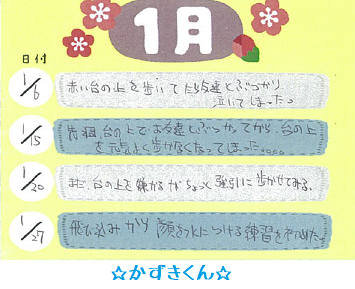 1月
日付
1/6
赤い台の上を歩いてたら友達とぶつかり
泣いてしまった。
1/15
先週、台の上でお友達とぶつかってから、台の上
を元気よく歩かなくなってしまった。。。。
1/20
まだ、台の上を嫌がるがちょっと強引に歩かせてみる。
1/27
飛び込みがてら 顔を水につける練習を
☆かずきくん☆